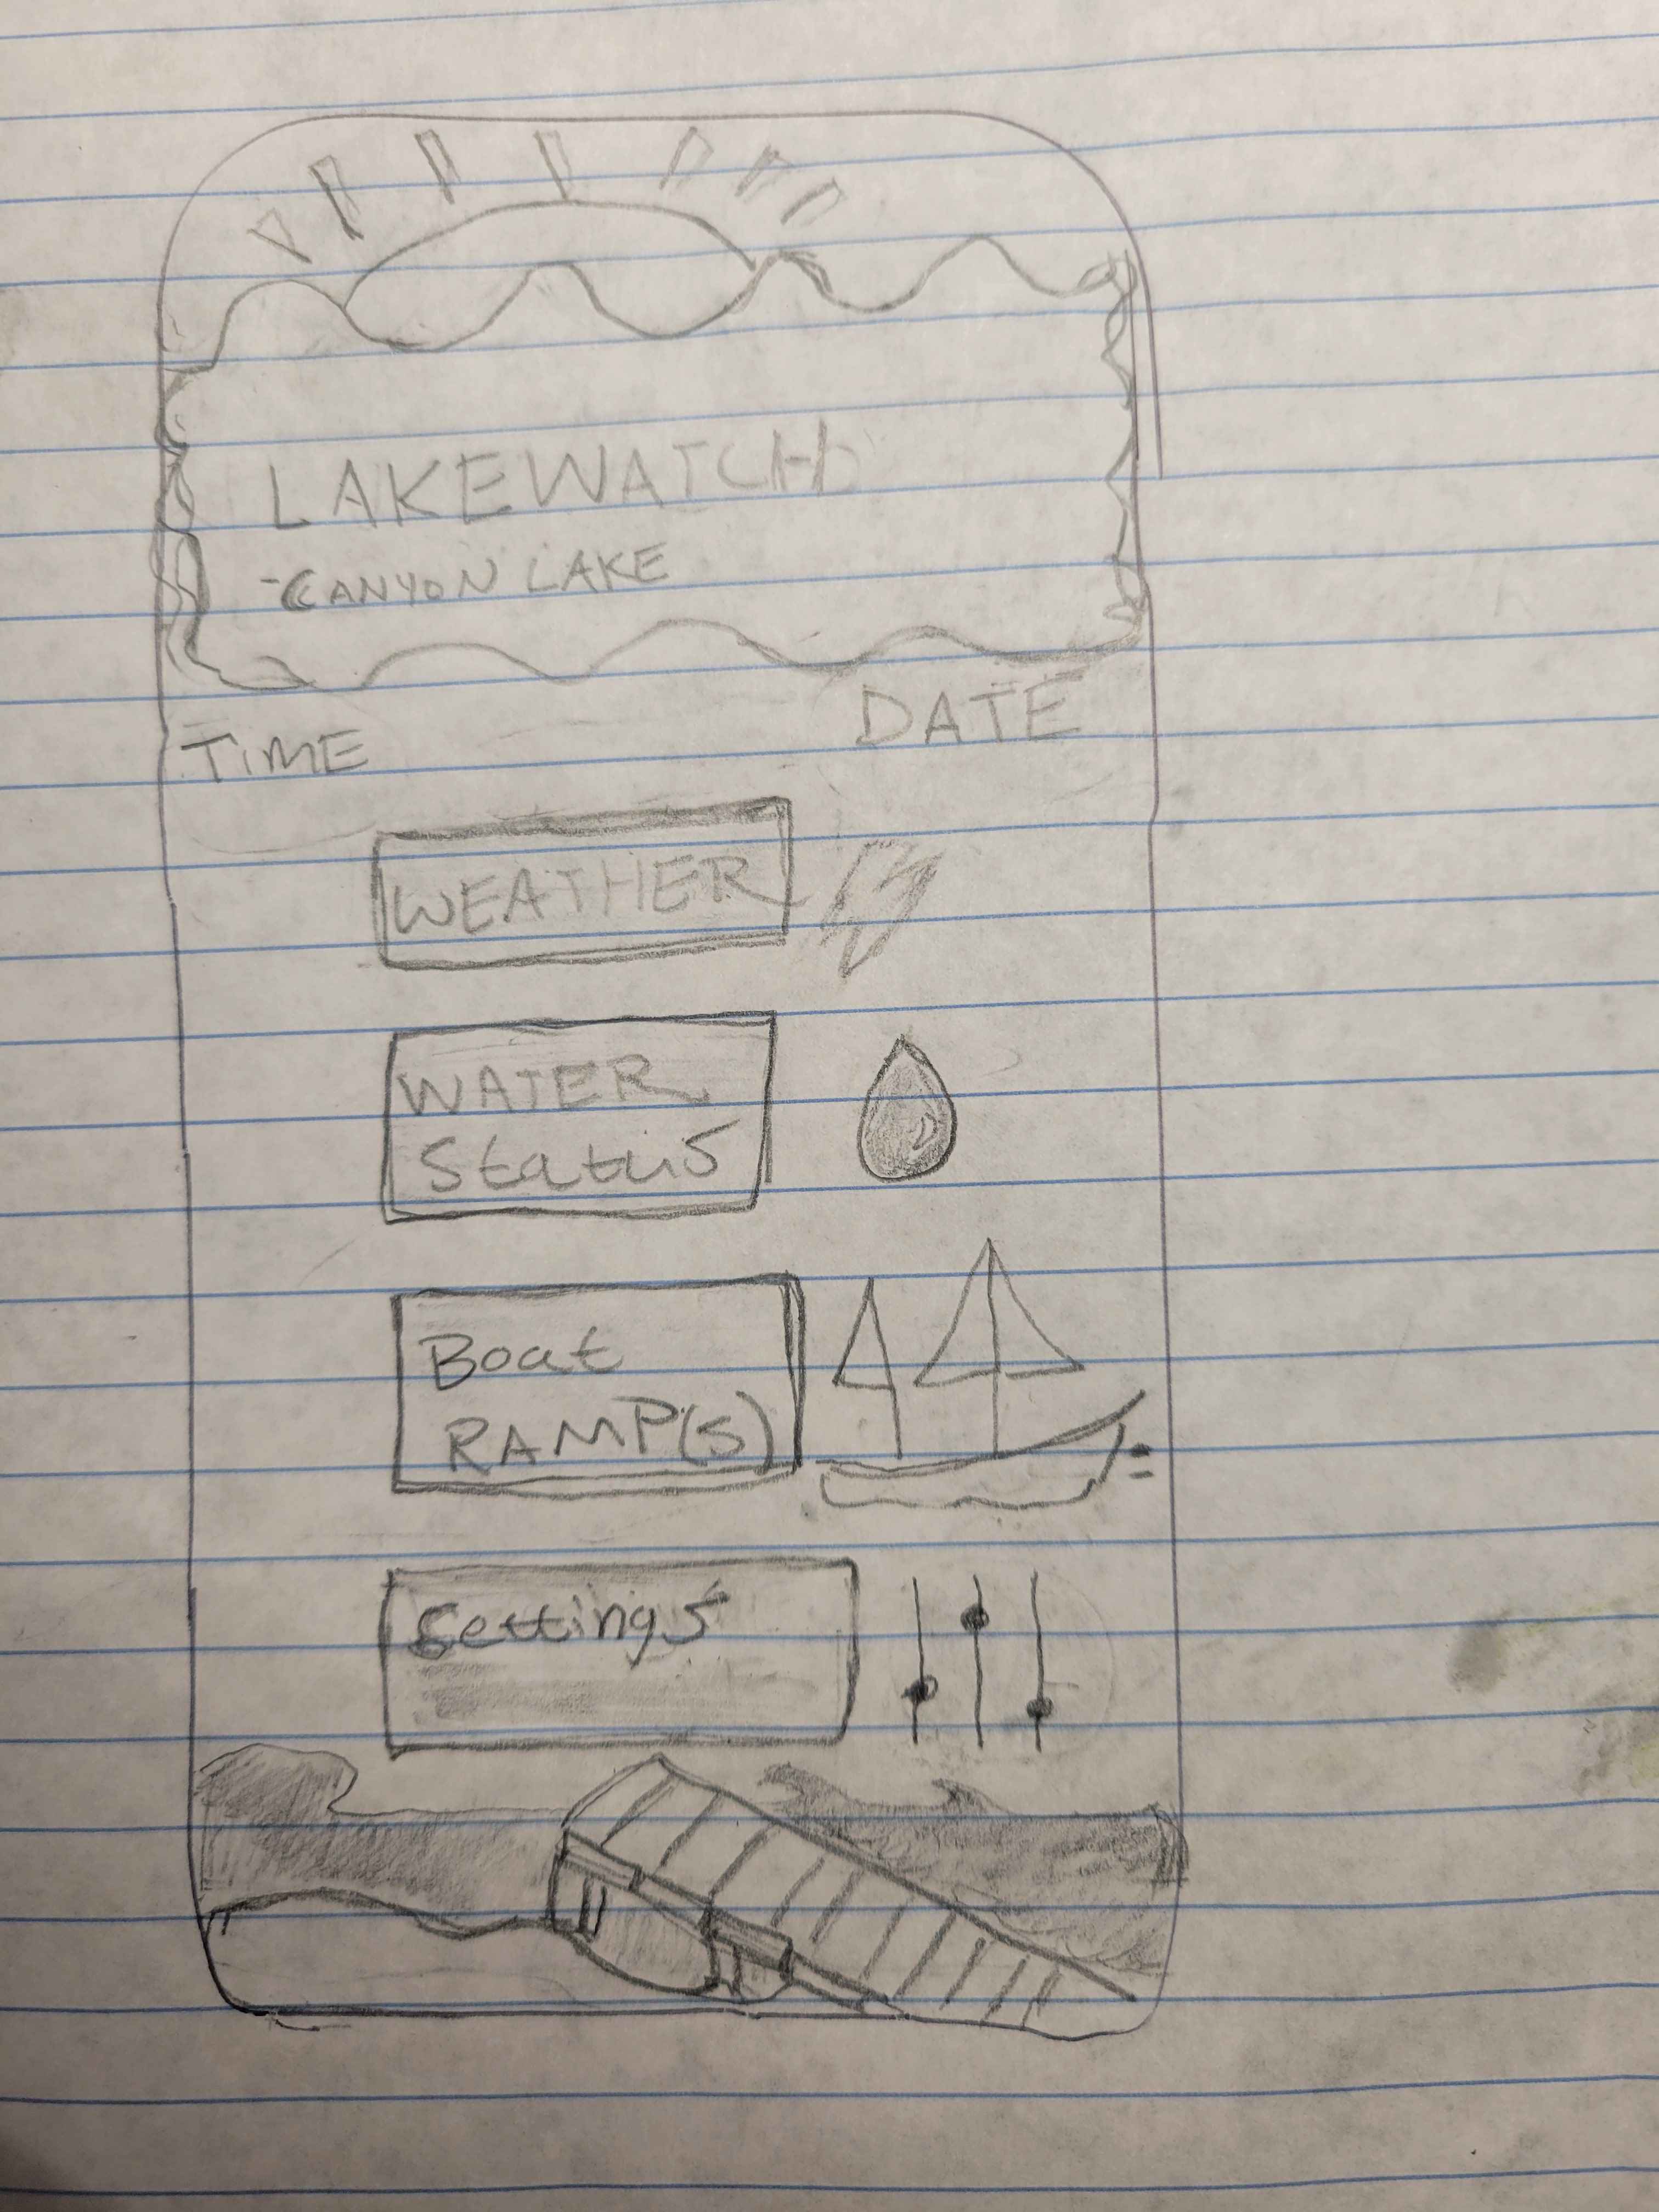 LAKEWATCH
-CANYON LAKE
TIME
DATE
WEATHER
WATER
Status
Boat
RAMP(S)
Settings